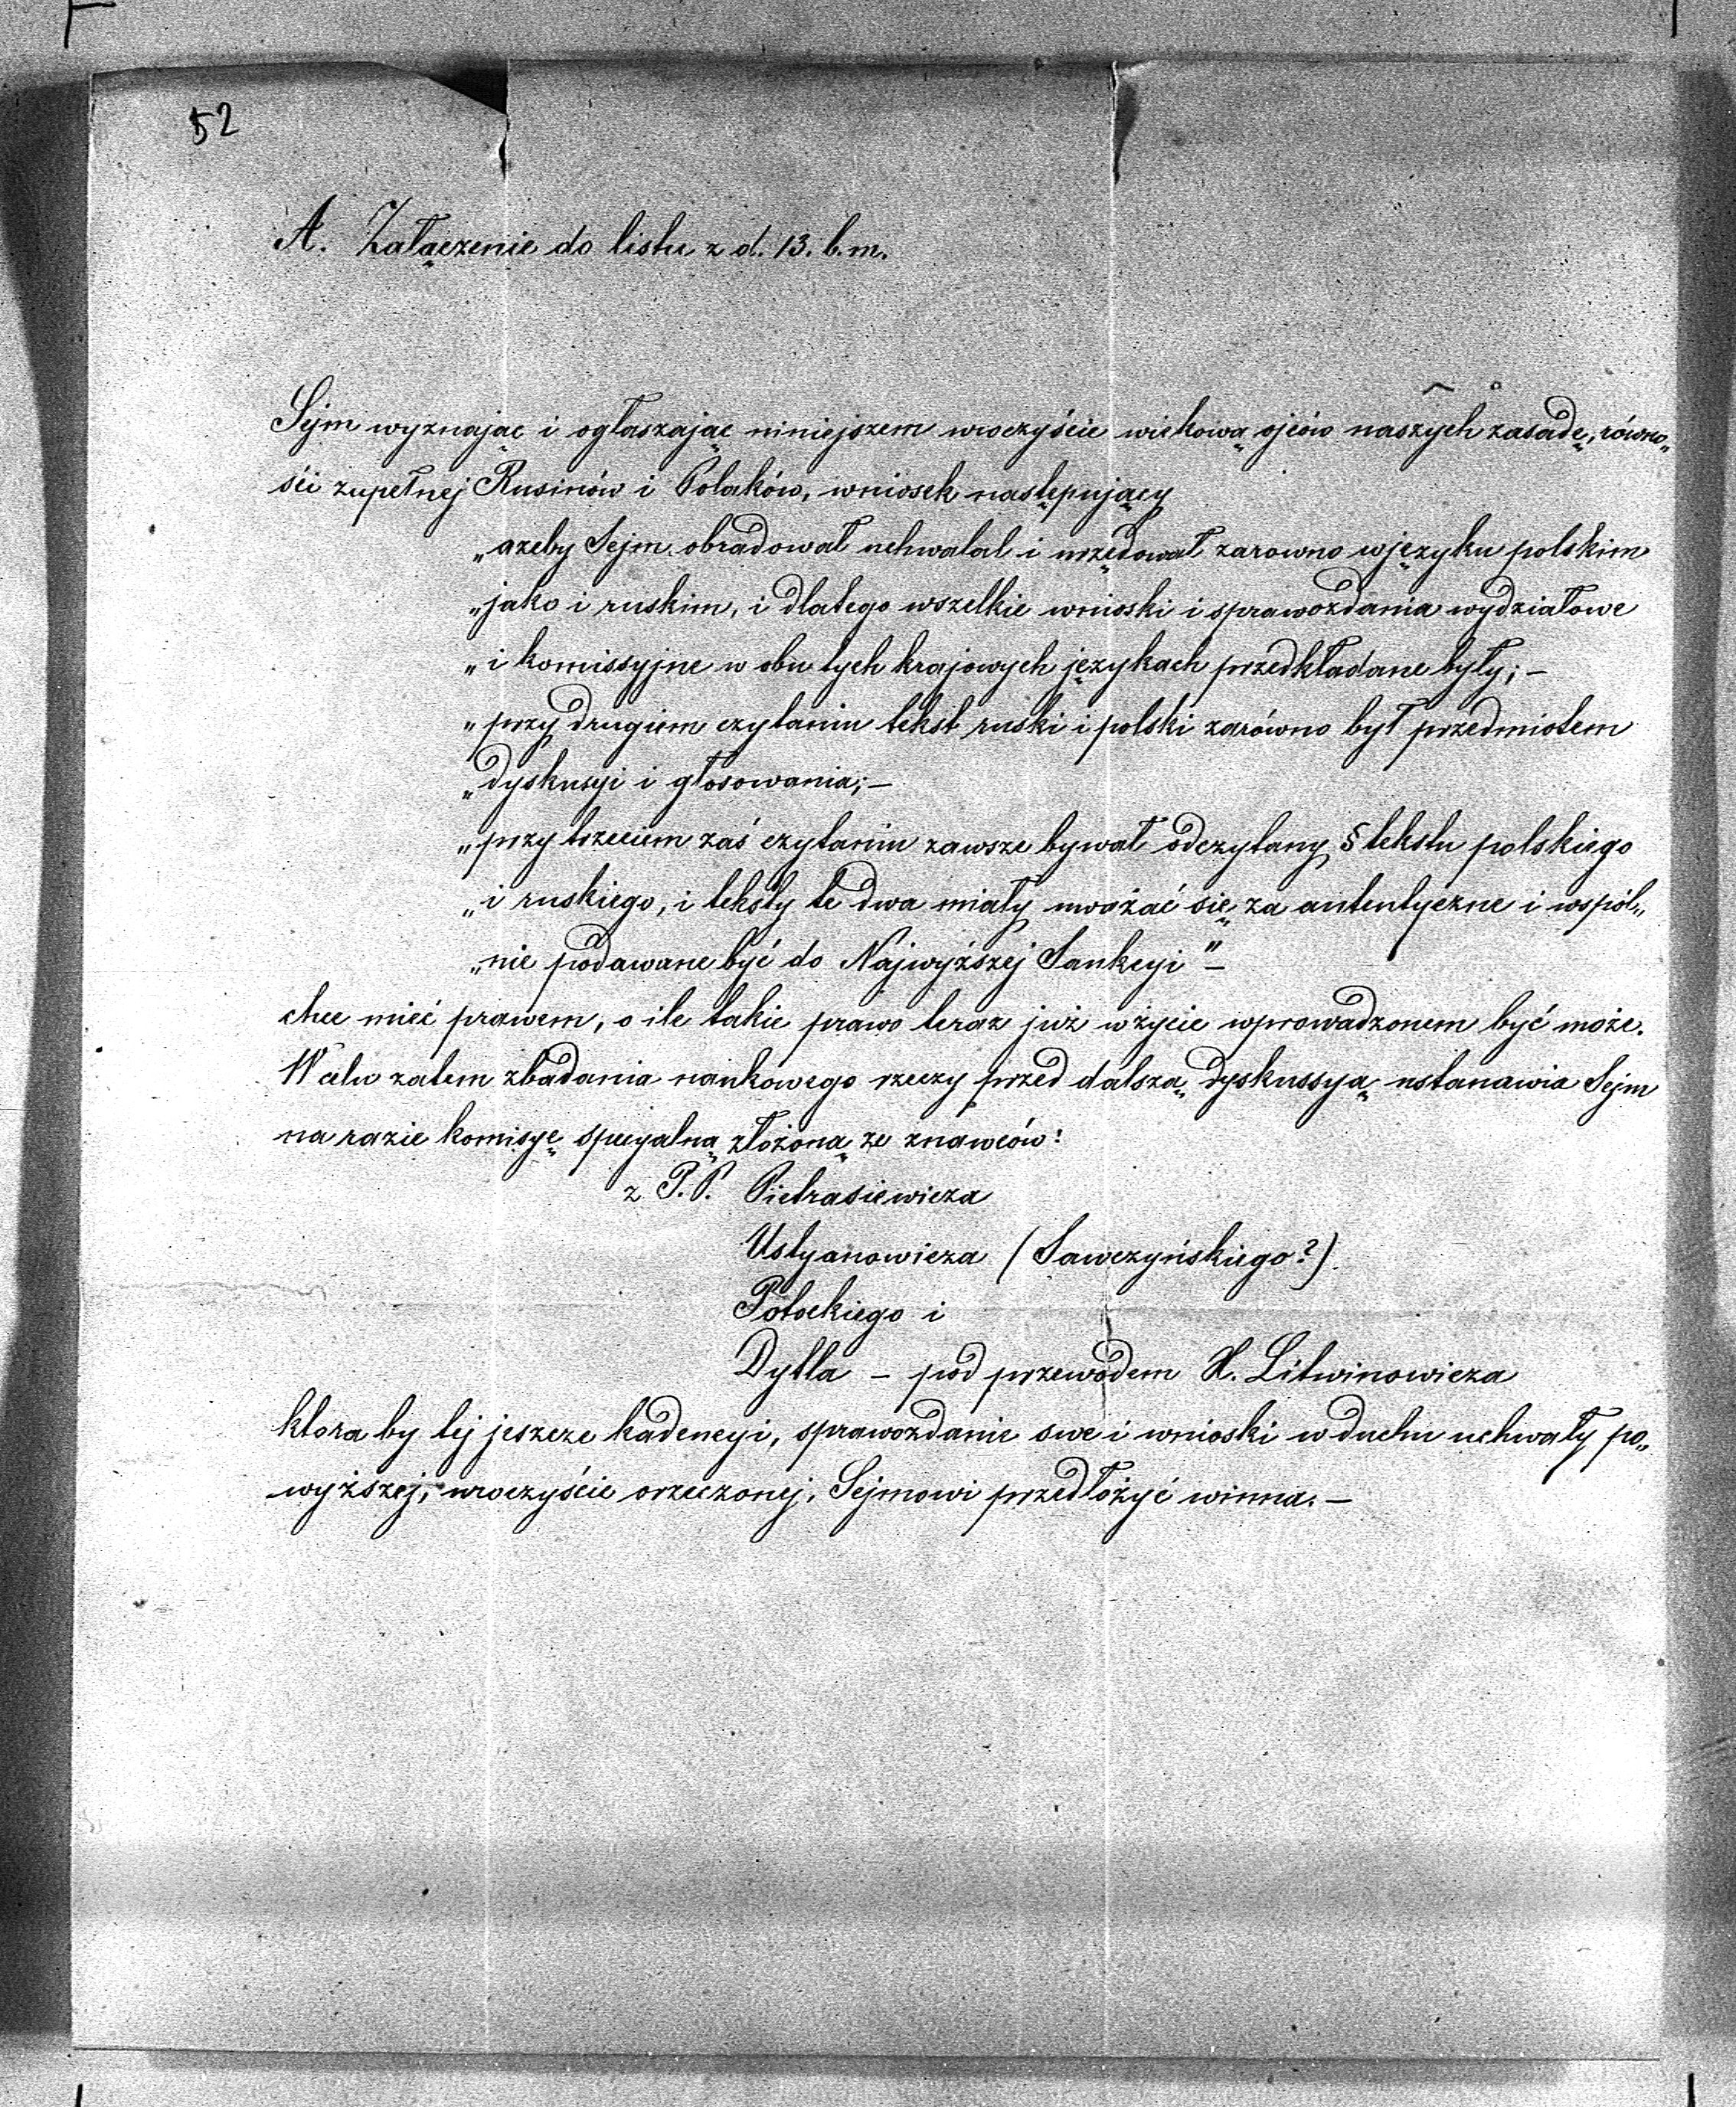 52
A. Załączenie do listu z d. 13. b. m.
Sejm wyznając i ogłaszając niniejszem uroczyście wiekową ojców naszych zasadę, równo„
ści zupełnej Rusinów i Polaków, wniosek następujący
„azeby Sejm obradował uchwalal i urzędował zarowno w języku polskim
„jako i ruskim, i dlatego wszelkie wnioski i sprawozdania wydziałowe
„i komissyjne w obu tych krajowych językach przedkładane były; –
„przy drugiem czytaniu tekst ruski i polski zarówno był przedmiotem
„dyskusyi i głosowania; –
„przy trzeciem zaś czytaniu zawsze bywał odczytany § tekstu polskiego
„i ruskiego, i teksty te dwa miały uważać się za autentyczne i wspól„
„nie podawane być do Najwyższej Sankcyi" –
chce mieć prawem, o ile takie prawo teraz już w życie wprowadzonem być może.
W celu zatem zbadania naukowego rzeczy przed dalszą dyskussyą ustanawia Sejm
na razie komisyę specyalną złożoną ze znawców:
z P. P. Pietrasiewicza
Ustyanowicza (Sawczyńskiego?)
Potockiego i
Dytla – pod przewodem X. Litwinowicza
ktora by tej jeszcze kadencyi, sprawozdanie swe i wnioski w duchu uchwały po„
wyższej, uroczyście orzeczonej, Sejmowi przedłożyć winna. –